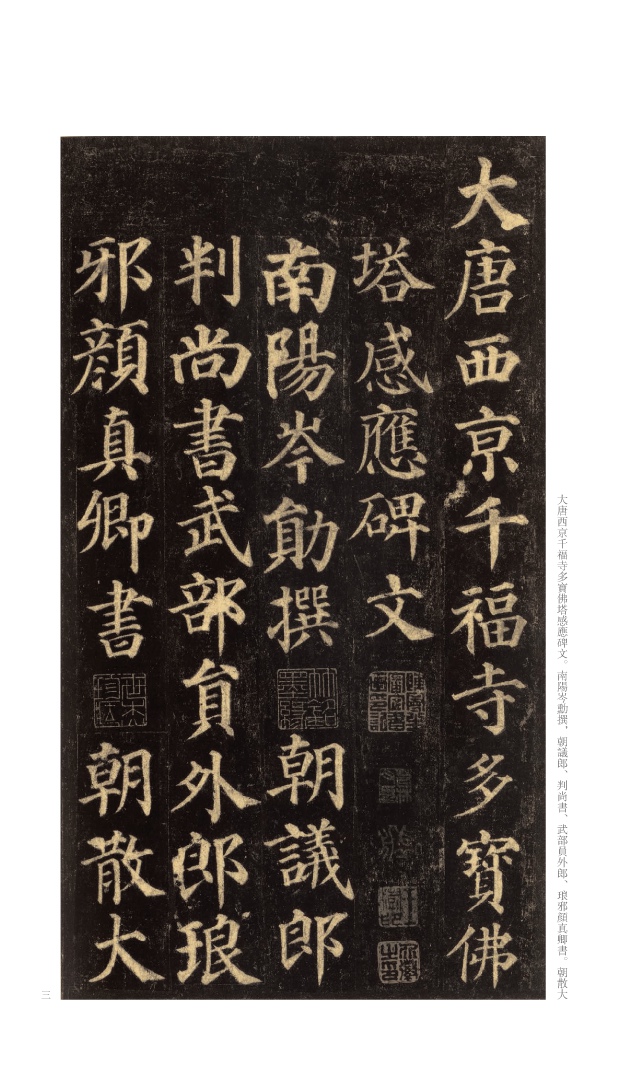 大唐西京千福寺多寶佛
塔感應碑文
南陽岑勛撰 朝議郎
判尚書武部員外郎琅
邪顏真卿書 朝散大
大唐西京千福寺多寶佛塔感應碑文。南陽岑勳撰，朝議郎、判尚書、武部員外郎、琅邪顏真卿書。朝散大
三